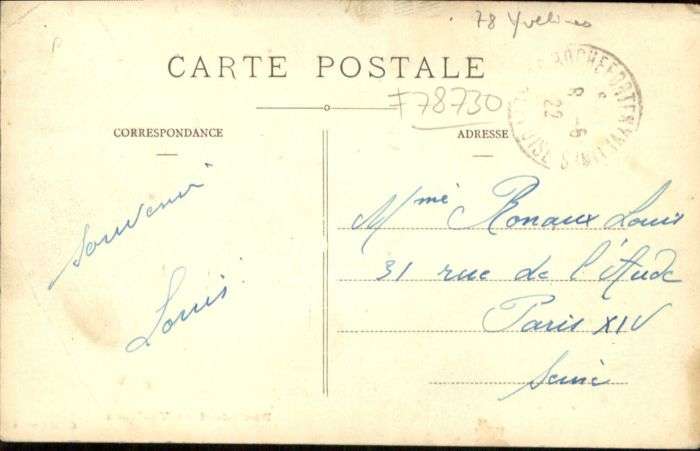 78 Yvelines
CARTE POSTALE
F78730
CORRESPONDANCE
ADRESSE
ROCHEFORT EN YVELINES
8 - 6
22
S. OISE
Souvenir
Louis
Mme Ronaux Louis
31 rue de l'Aude
Paris XIV
Seine